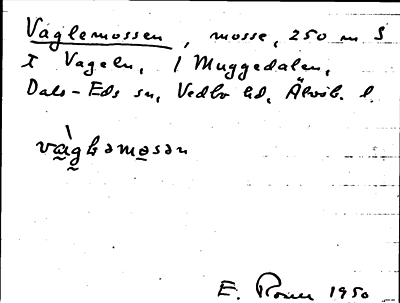 Vaglemossen, mosse, 250 m S
I Vageln, / Muggedalen,
Dals-Eds sn, Vedbo hd, Älvsb. l.
E. Rosell 1950